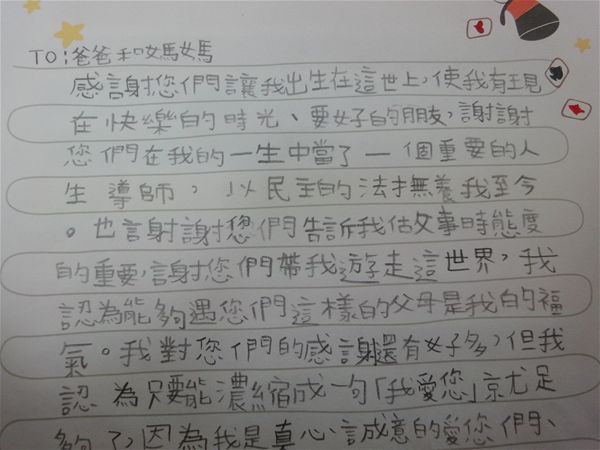 TO:爸爸和媽媽
感謝您們讓我出生在這世上，使我有現
在快樂的時光、要好的朋友，謝謝
您們在我的一生中當了一個重要的人
生導師，以民主的法撫養我至今
。也謝謝您們告訴我做事時態度
的重要，謝您們帶我遊走這世界，我
認為能夠遇您們這樣的父母是我的福
氣。我對您們的感謝還有好多，但我
認為只要能濃縮成一句「我愛您」就足
夠了，因為我是真心、誠意的愛您們、